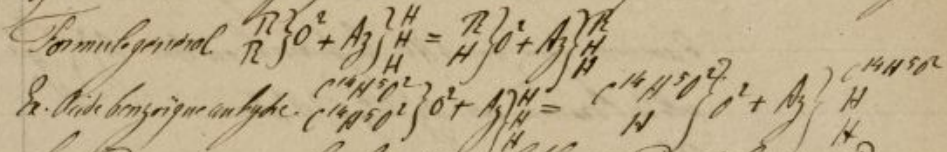 Formule général R R } O² + Az } H H H = R H } O² + Az } R H H
Ex. Acide benzoïque anhydre. C¹⁴H⁵O² C¹⁴H⁵O² } O² + Az } H H H = C¹⁴H⁵O² H } O² + Az } C¹⁴H⁵O² H H